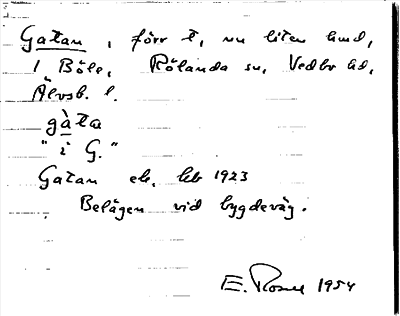 Gatan, förr t, nu liten lund,
1 Böle, Rölanda sn, Vedbo hd,
Älvsb. l.
gàta
"i G."
Gatan ek. kb 1923
Belägen vid bygdeväg.
E. Rosell 1954